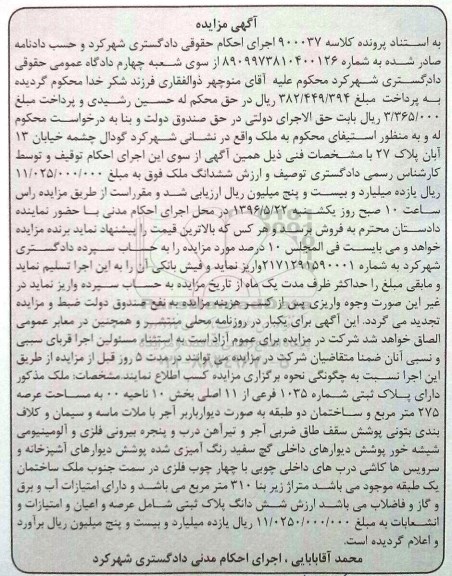 آگهی مزایده
به استناد پرونده کلاسه ۹۰۰۰۳۷ اجرای احکام حقوقی دادگستری شهرکرد و حسب دادنامه
صادر شده به شماره ۸۹۰۹۹۷۳۸۱۰۴۰۰۱۲۶ از سوی شعبه چهارم دادگاه عمومی حقوقی
دادگستری شهرکرد محکوم علیه آقای منوچهر ذوالفقاری فرزند شکر خدا محکوم گردیده
به پرداخت مبلغ ۳۸۲/۴۴۹/۳۹۴ ریال در حق محکم له حسین رشیدی و پرداخت مبلغ
۳/۳۶۵/۰۰۰ ریال بابت حق الاجرای دولتی در حق صندوق دولت و بنا به درخواست محکوم
له و به منظور استیفای محکوم به ملک واقع در نشانی شهرکرد گودال چشمه خیابان ۱۳
آبان پلاک ۲۷ با مشخصات فنی ذیل همین آگهی از سوی این اجرای احکام توقیف و توسط
کارشناس رسمی دادگستری توصیف و ارزش ششدانگ ملک فوق به مبلغ ۱۱/۰۲۵/۰۰۰/۰۰۰
ریال یازده میلیارد و بیست و پنج میلیون ریال ارزیابی شد و مقرراست از طریق مزایده راس
ساعت ۱۰ صبح روز یکشنبه ۱۳۹۶/۵/۲۲ در محل اجرای احکام مدنی با حضور نماینده
دادستان محترم به فروش برسد و هر کس که بالاترین قیمت را پیشنهاد نماید برنده مزایده
خواهد و می بایست فی المجلس ۱۰ درصد مورد مزایده را به حساب سپرده دادگستری
شهرکرد به شماره ۲۱۷۱۲۹۱۵۹۰۰۰۱ واریز نماید و فیش بانکی آن را به این اجرا تسلیم نماید
و مابقی مبلغ را حداکثر ظرف مدت یک ماه از تاریخ مزایده به حساب سپرده واریز نماید در
غیر این صورت وجوه واریزی پس از کسر هزینه مزایده به نفع صندوق دولت ضبط و مزایده
تجدید می گردد. این آگهی برای یکبار در روزنامه محلی منتشر و همچنین در معابر عمومی
الصاق خواهد شد شرکت در مزایده برای عموم آزاد است به استثناء مسئولین اجرا قربای سببی
و نسبی آنان ضمنا متقاضیان شرکت در مزایده می توانند در مدت ۵ روز قبل از مزایده از طریق
این اجرا نسبت به چگونگی نحوه برگزاری مزایده کسب اطلاع نمایند.مشخصات: ملک مذکور
دارای پلاک ثبتی شماره ۱۰۳۵ فرعی از ۱۱ اصلی بخش ۱۰ ناحیه ۰۰ به مساحت عرصه
۲۷۵ متر مربع و ساختمان دو طبقه به صورت دیوارباربر آجر با ملات ماسه و سیمان و کلاف
بندی بتونی پوشش سقف طاق ضربی آجر و تیرآهن درب و پنجره بیرونی فلزی و آلومینیومی
شیشه خور پوشش دیوارهای داخلی گچ سفید رنگ آمیزی شده پوشش دیوارهای آشپزخانه و
سرویس ها کاشی درب های داخلی چوبی با چهار چوب فلزی در سمت جنوب ملک ساختمان
یک طبقه موجود می باشد متراژ زیر بنا ۳۱۰ متر مربع می باشد و دارای امتیازات آب و برق
و گاز و فاضلاب می باشد ارزش شش دانگ پلاک ثبتی شامل عرصه و اعیان و امتیازات و
انشعابات به مبلغ ۱۱/۰۲۵۰/۰۰۰/۰۰۰ ریال یازده میلیارد و بیست و پنج میلیون ریال برآورد
و اعلام گردیده است.
محمد آقابابایی ، اجرای احکام مدنی دادگستری شهرکرد